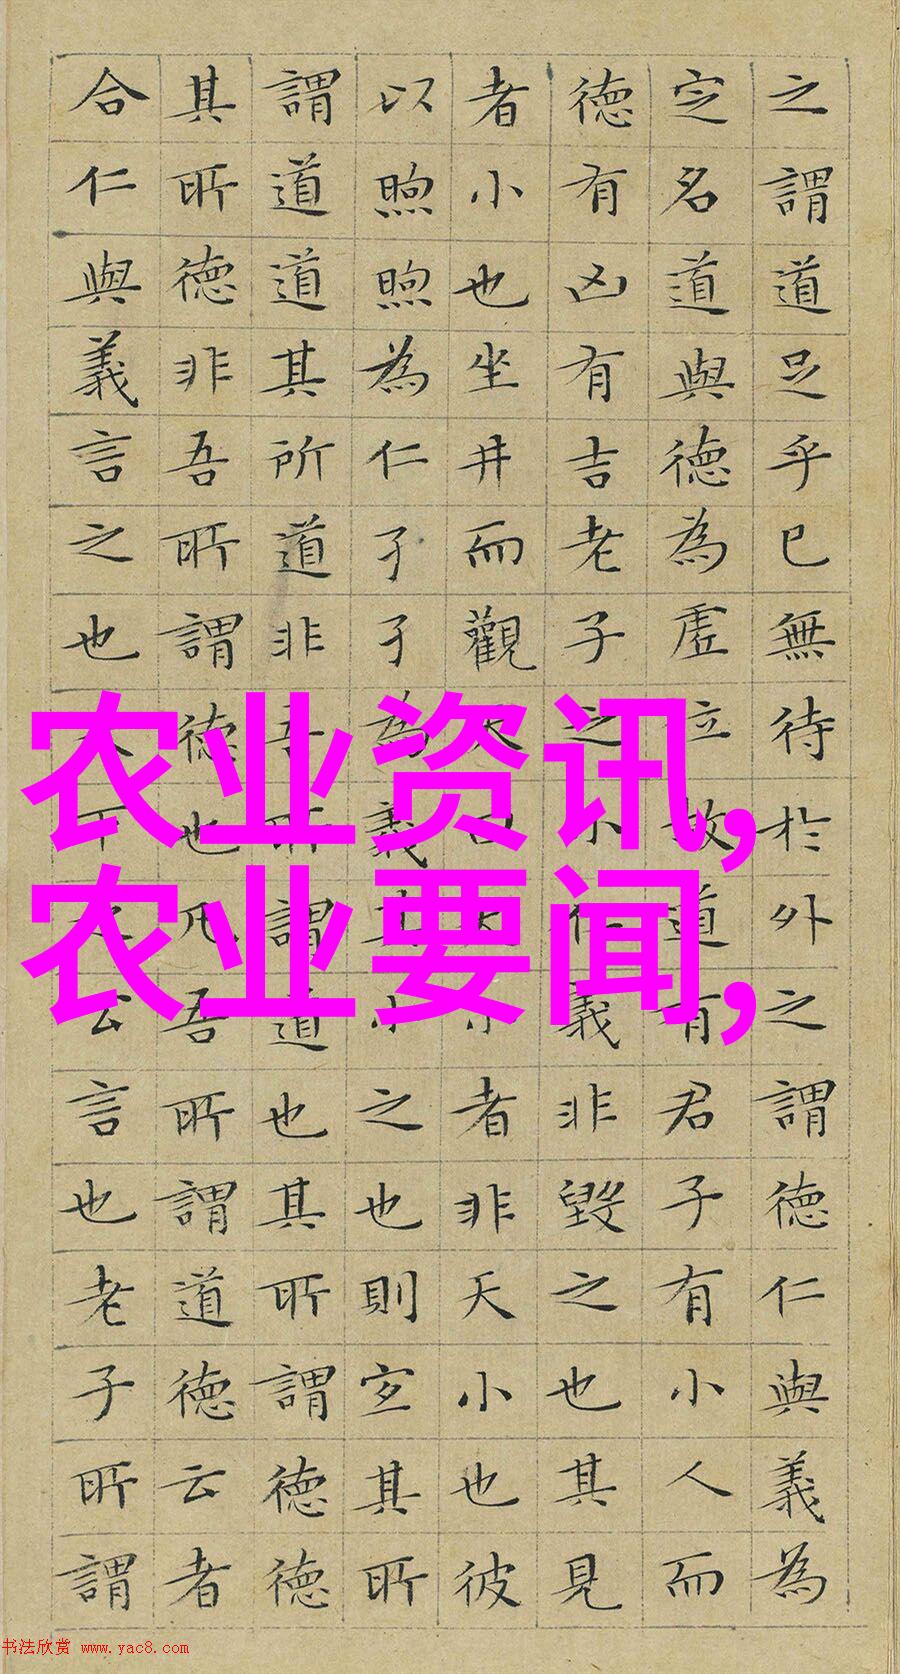 之謂道足乎已無待於外之謂德仁與義為
定名道與德為虛位故道有君子有小人而
德有凶有吉老子之小仁義非毀之也其見
者小也坐井而觀天曰天小者非天小也彼
以煦煦為仁孑孑為義其小之也則宜其所
謂道道其所道非吾所謂道也其所謂德德
其所德非吾所謂德也凡吾所謂道德云者
合仁與義言之也天下之公言也老子所謂
农业资讯,
农业要闻,
书法欣赏 www.yac8.com